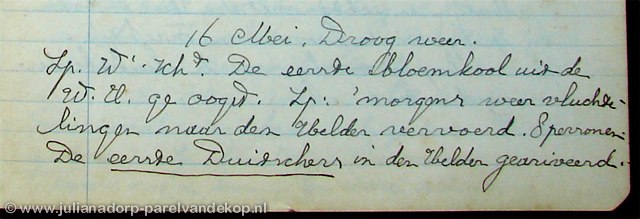 16 Mei. Droog weer.
Lp. W'. Kh<sup>d</sup>. De eerste bloemkool uit de
W. U. ge oogst. Lp: 'morgens weer vluchte-
lingen naar den Helder vervoerd. 8 perronen.
De eerste Duitschers in den Helder gearriveerd.
© www.julianadorp-parelvandekop.nl